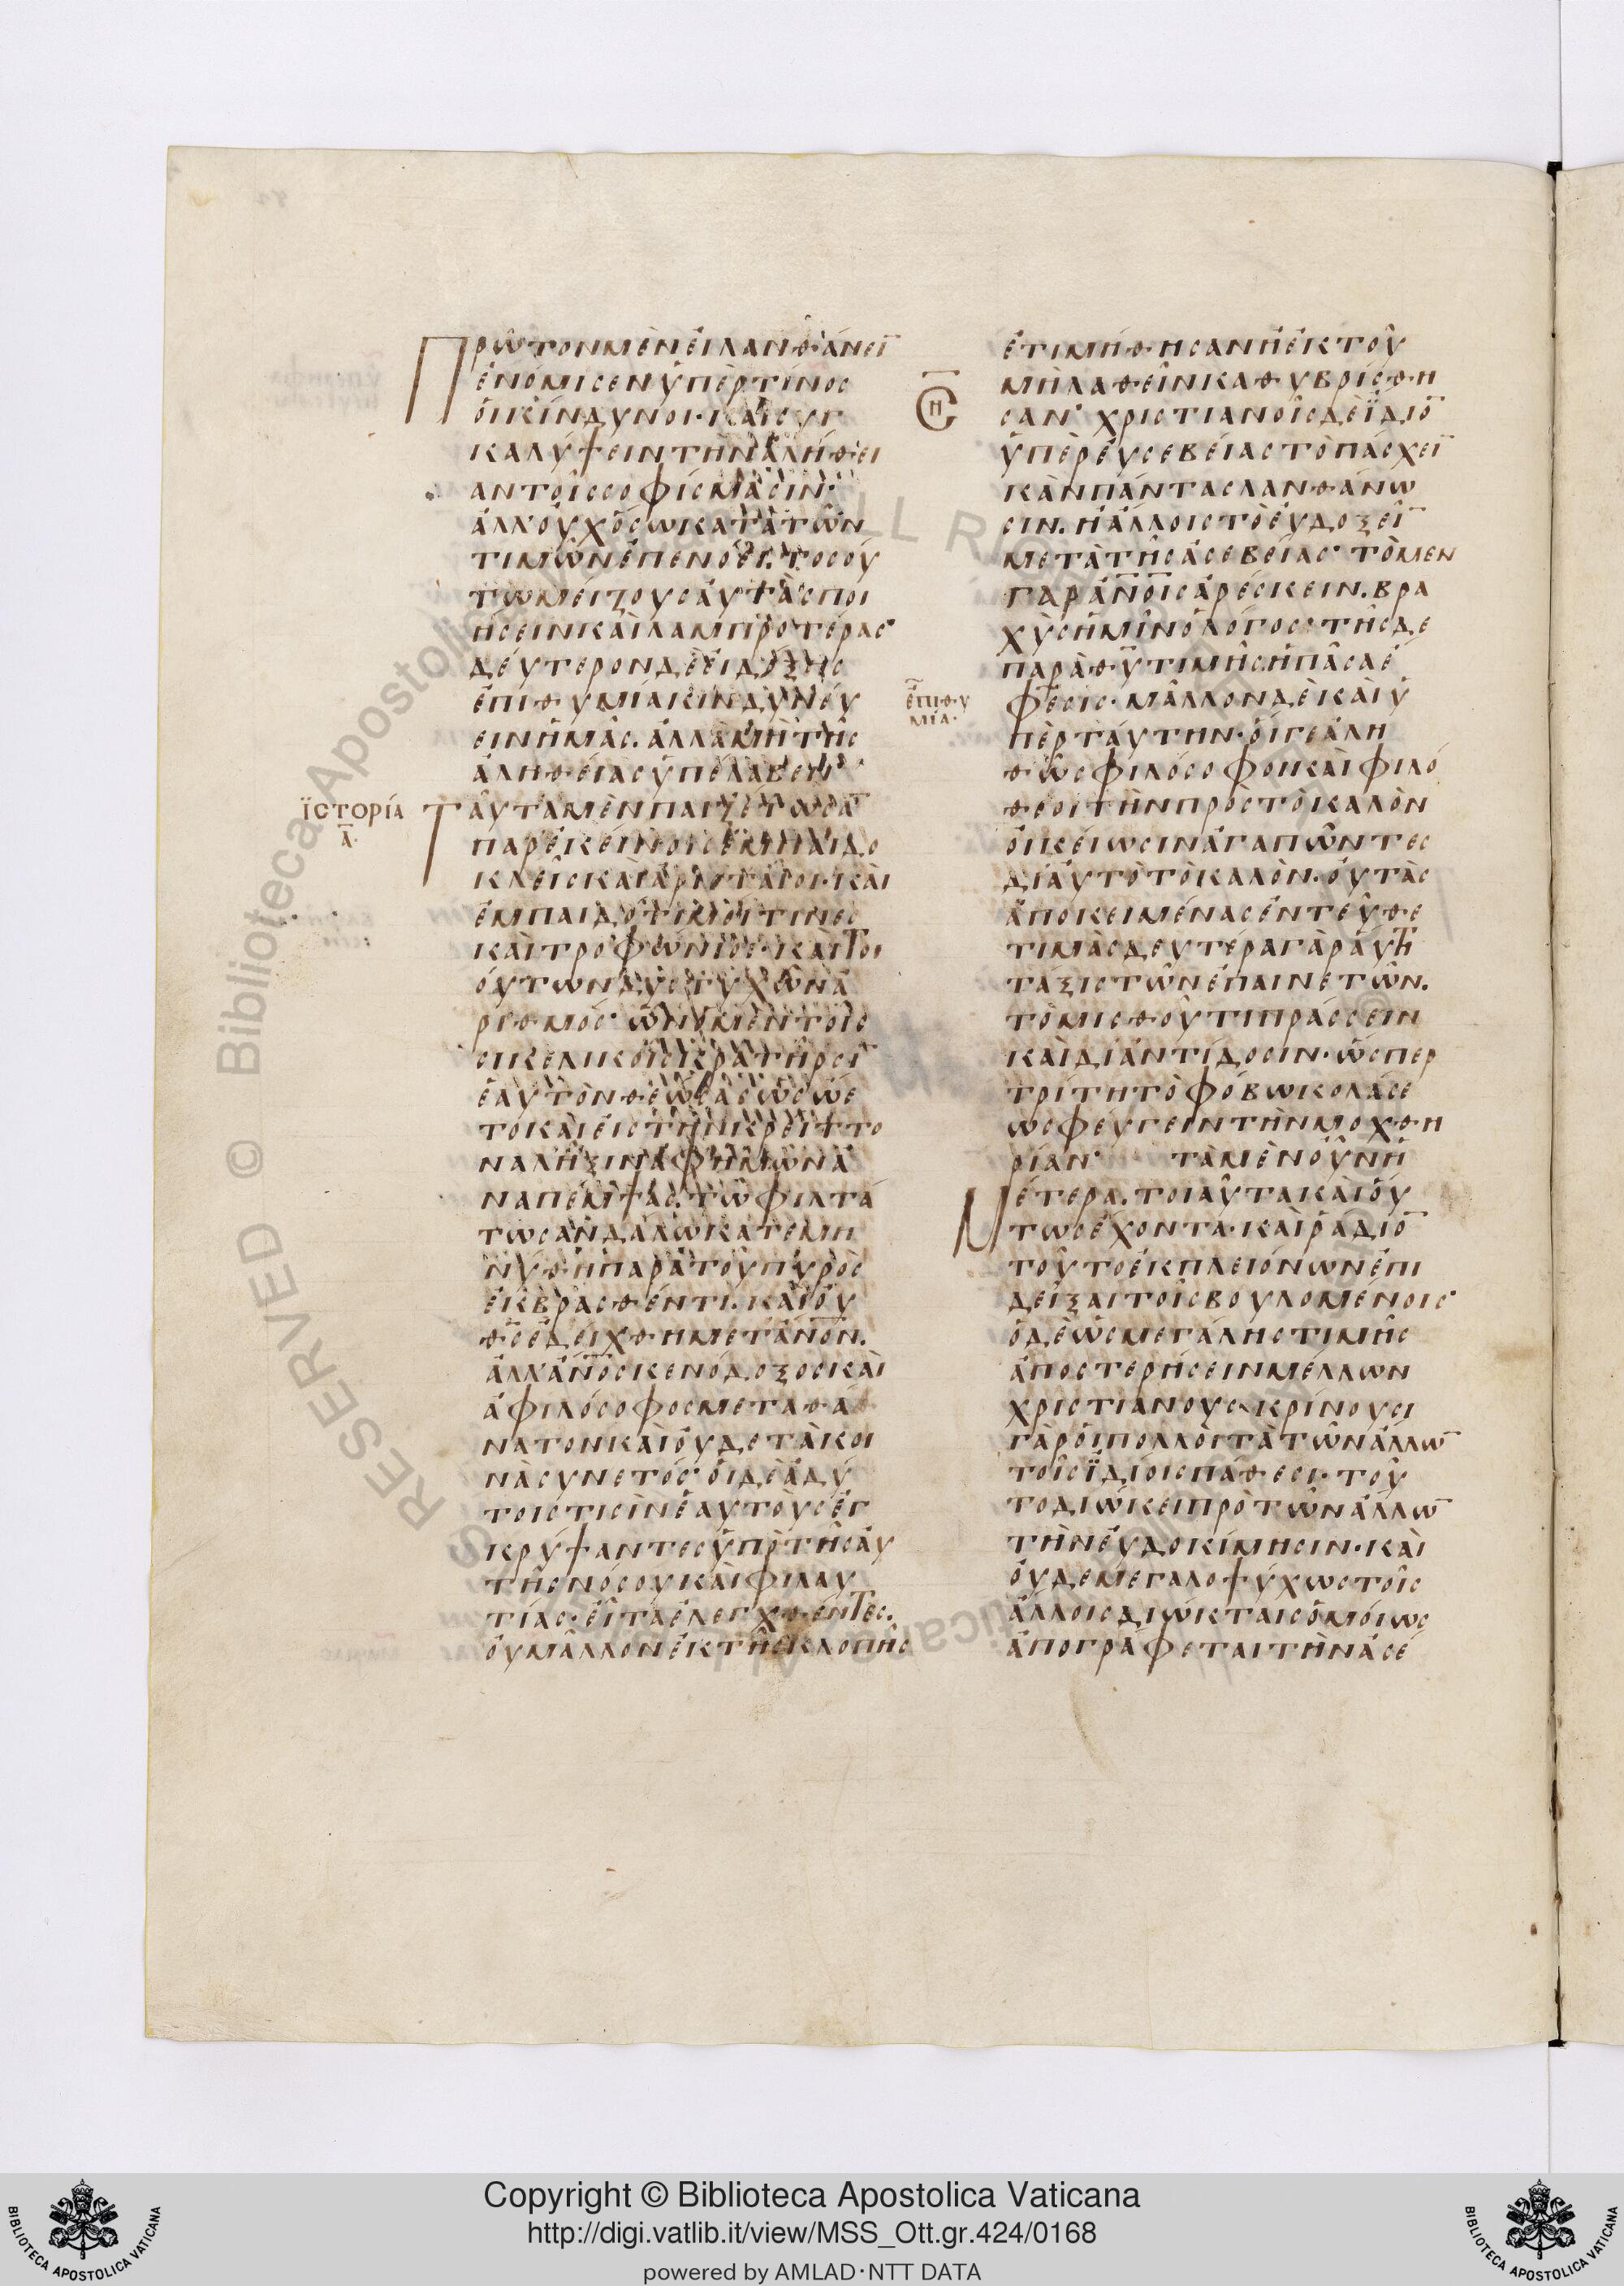 Πρῶτον μὲν εἰ λανθάνει̅
ἐνόμισεν ὑπὲρ τίνος
ὁι κίνδυνοι· καὶ συγ
καλύψειν τὴν ἀλήθει
αν τοῖς σοφίσμασιν·
ἀλλ' οὐχ ὅσω κατὰ τῶν
τιμῶν ἐπενόει. τοσού
τω μείζους ἀυτὰς ποι
ήσειν καὶ λαμπροτέρας·
δεύτερον δὲ εἰ δόξης
ἐπιθυμία κινδυνεύ
ειν ἡμᾶς. ἀλλὰ μὴ τῆς
ἀληθείας ὑπέλαβεν·
ϊστορία
α̅·
Ταῦτα μὲν παιζέτωσα̅
παρ' ἐκείνοις ἐμπαιδο
κλεῖς καὶ ἀρισταῖοι· καὶ
ἐμπαιδότιμοί τινες
καὶ τροφώνιοι· καὶ τοι
ούτων δυστυχῶν ἀ
ριθμός· ὧν ὁ μὲν τοῖς
σικελικοῖς κρατῆρσι̅
ἑαυτὸν θεώσας ὡς ὤε
το καὶ εἰς τὴν κρείττο
να λῆξιν ἀφ' ἡμῶν ἀ
ναπέμψας. τῶ φιλτά
τω σανδάλω κατεμη
νύθη παρὰ τοῦ πυρὸς
ἐκβρασθέντι. καὶ οὐ
θ̅ς̅ ἐδείχθη μετ' ἀν̅ο̅ν̅.
ἀλλ' ἀν̅ο̅ς̅ κενόδοξος καὶ
ἀφιλόσοφος μετὰ θά
νατον καὶ οὐδὲ τὰ κοι
νὰ συνετός· ὁι δὲ ἀδύ
τοις τισὶν ἑαυτοὺς ἐγ
κρύψαντες ὑπὸ τῆς ἀυ
τῆς νόσου καὶ φιλαυ
τίας· εἶτα ἐλεγχθέντες.
οὐ μᾶλλον ἐκ τῆς κλοπῆς
ἐτιμήθησαν ἢ ἐκ τοῦ
μὴ λαθεῖν καθυβρίσθη
ση̅
σαν· χριστιανοῖς δὲ ϊδιο̅
ὑπὲρ ἐυσεβείας τὸ πάσχει̅
κὰν πάντας λανθάνω
σιν. ἢ ἄλλοις τὸ ἐυδοξεῖ̅
μετὰ τῆς ἀσεβείας· τὸ μὲν
γὰρ ἀν̅ο̅ι̅ς̅ ἀρέσκειν. βρα
χὺς ἡμῖν ὁ λόγος· τῆς δὲ
παρὰ θ̅υ̅ τιμῆς ἡ πᾶσα ἔ
ἐπιθυ
μία·
φεσις· μᾶλλον δὲ καὶ ὑ
πὲρ ταύτην· ὅι γε ἀλη
θῶς φιλόσοφοι καὶ φιλό
θεοι τὴν πρὸς τὸ καλὸν
ὀικείωσιν ἀγαπῶντες
δι' ἀυτὸ τὸ καλὸν. οὐ τὰς
ἀποκειμένας ἐντεῦθε
τιμὰς δευτέρα γὰρ ἀύτη
τάξις τῶν ἐπαινετῶν.
τὸ μισθοῦ τι πράσσειν
καὶ δι' ἀντίδοσιν· ὥσπερ
τρίτη τὸ φόβω κολάσε
ως φεύγειν τὴν μοχθη
ρίαν· τὰ μὲν οὖν ἡ
Μέτερα. τοιαῦτα καὶ ὅυ
τως ἔχοντα· καὶ ῥάδιο̅
τοῦτο ἐκ πλειόνων ἐπι
δεῖξαι τοῖς βουλομένοις·
ὁ δὲ ὡς μεγάλης τιμῆς
ἀποστερήσειν μέλλων
χριστιανοὺς κρίνουσι
γὰρ ὁι πολλοὶ τὰ τῶν ἄλλω̅
τοῖς ϊδίοις πάθεσι· τοῦ
το διώκει πρὸ τῶν ἄλλω̅
τὴν ἐυδοκίμησιν· καὶ
οὐδὲ μεγαλοψύχως τοῖς
ἄλλοις διώκταις ὁμοίως
ἀπογράφεται τὴν ἀσέ
BIBLIOTECA APOSTOLICA VATICANA
Copyright © Biblioteca Apostolica Vaticana
http://digi.vatlib.it/view/MSS_Ott.gr.424/0168
powered by AMLAD·NTT DATA
BIBLIOTECA APOSTOLICA VATICANA